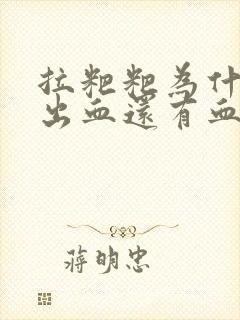 拉粑粑為什
出血還有血
蔣明忠